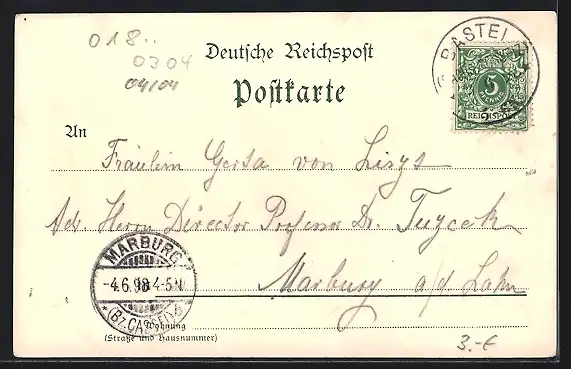 018..
0304
04/04
Deutsche Reichspost
Postkarte
BASTEI
5
REICHSPOST
An
Fräulein Gerta von Liszt
Adr. Herrn Director Professor Dr. Tuczek
Marburg a/d. Lahn
MARBURG
-4.6.98 4-5N
*(Bz. CASSEL)*
Wohnung
(Straße und Hausnummer)
3.-€